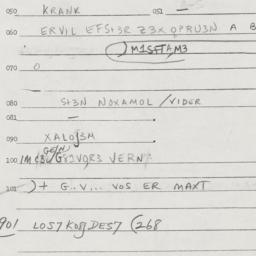 050 KRANK 051 —
060 ERVIL EFSt3R Z3X QPRU3N A B
M1SFTAM3
070 O
080 St3N NOXAMOL / VIDER
081 —
090 XALOJ3M
100
101 )+ G..V... VOS ER MAXT
901 LOS7 DES7 (268